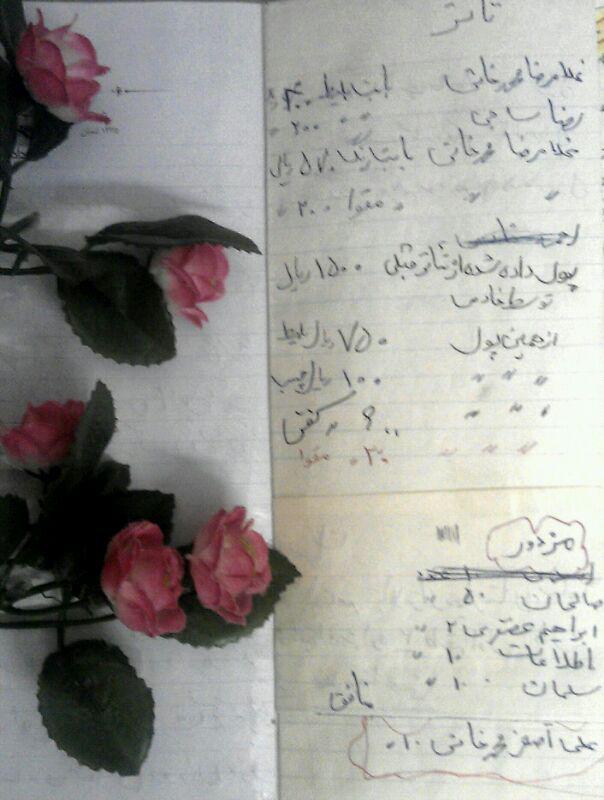 تاتر
غلامرضا محمدخانی بابت بلیط
رضا ساجی " " ۲۰۰ "
غلامرضا محمدخانی بابت رنگ ۵۷۰ ریال
" " " مقوا ۲۰۰ "
پول داده شده از تاتر قبلی ۱۵۰۰ ریال
توسط خادمی
از همین پول ۷۵۰ ریال بلیط
" " " ۱۰۰ ریال چسب
" " "
" " " ۳۰ " مقوا
مزدور
صالحان ۵۰ "
ابراهیم عصری ۲ "
اطلاعات ۱۰ "
سلمان ۱۰ " منافق
علی اصغر محمدخانی ۱۰ "